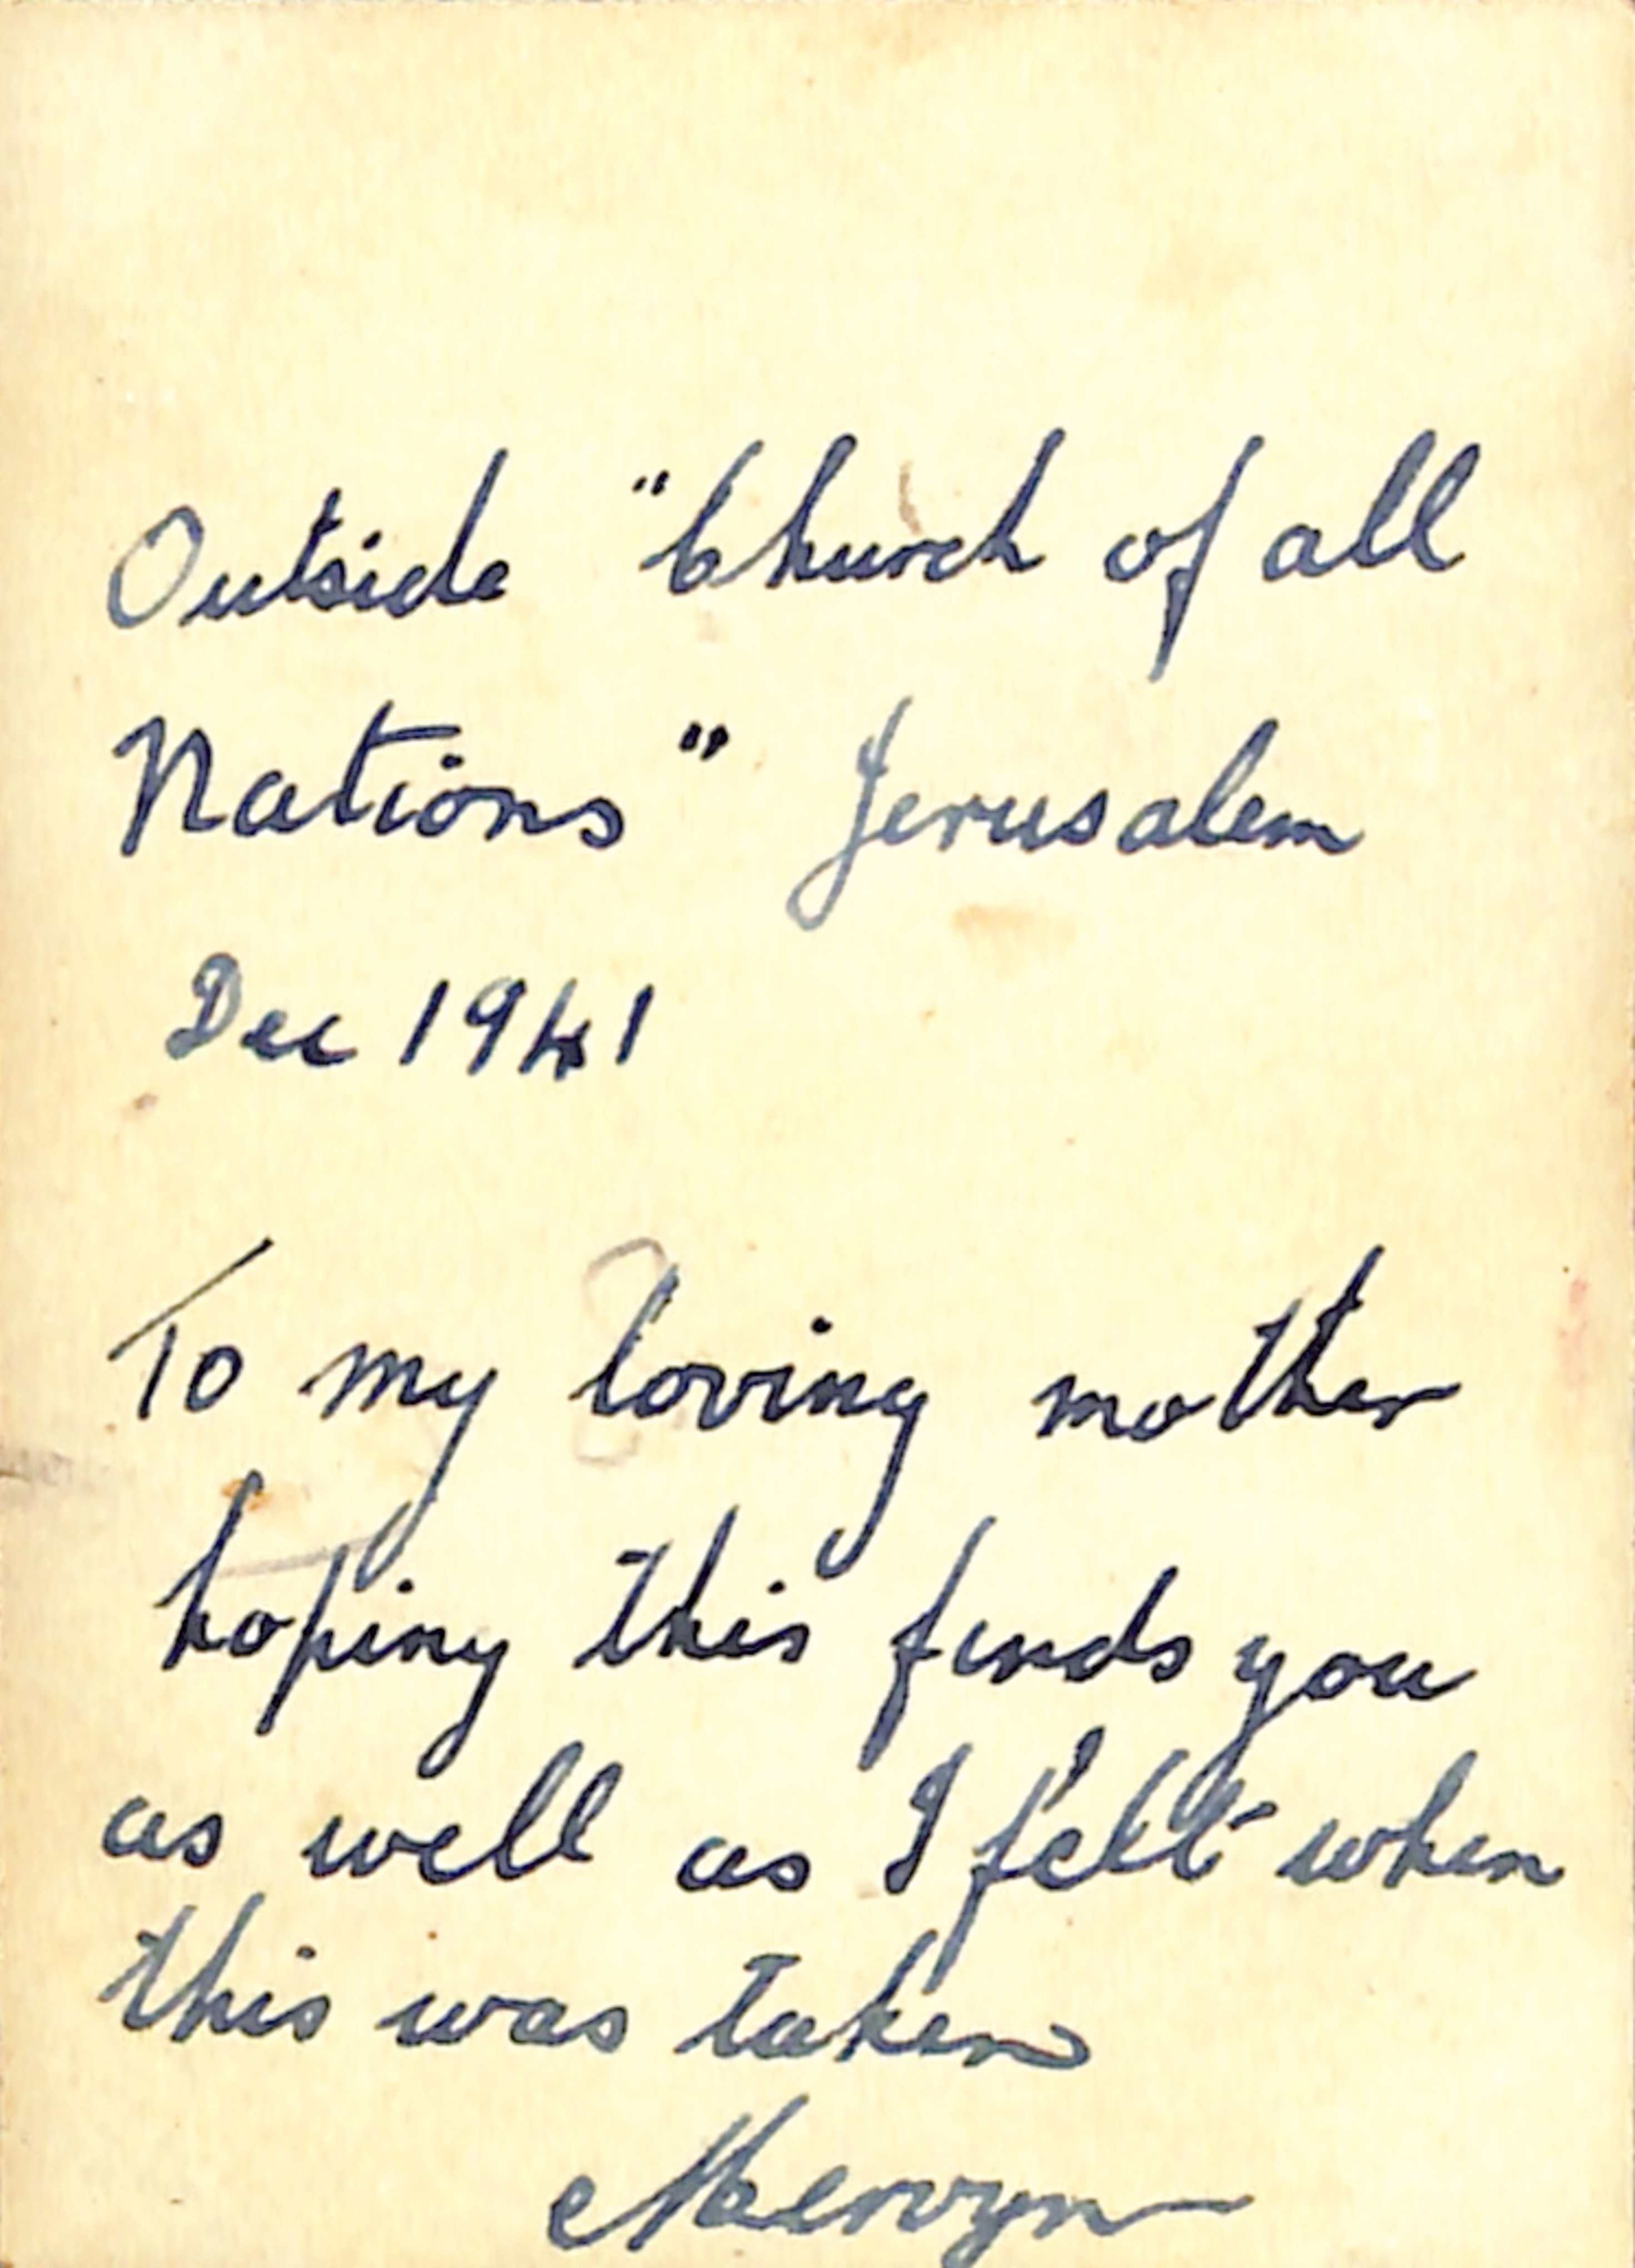 Outside "Church of all
Nations" Jerusalem
Dec 1941
To my loving mother
hoping this finds you
as well as I felt when
this was taken
Mervyn